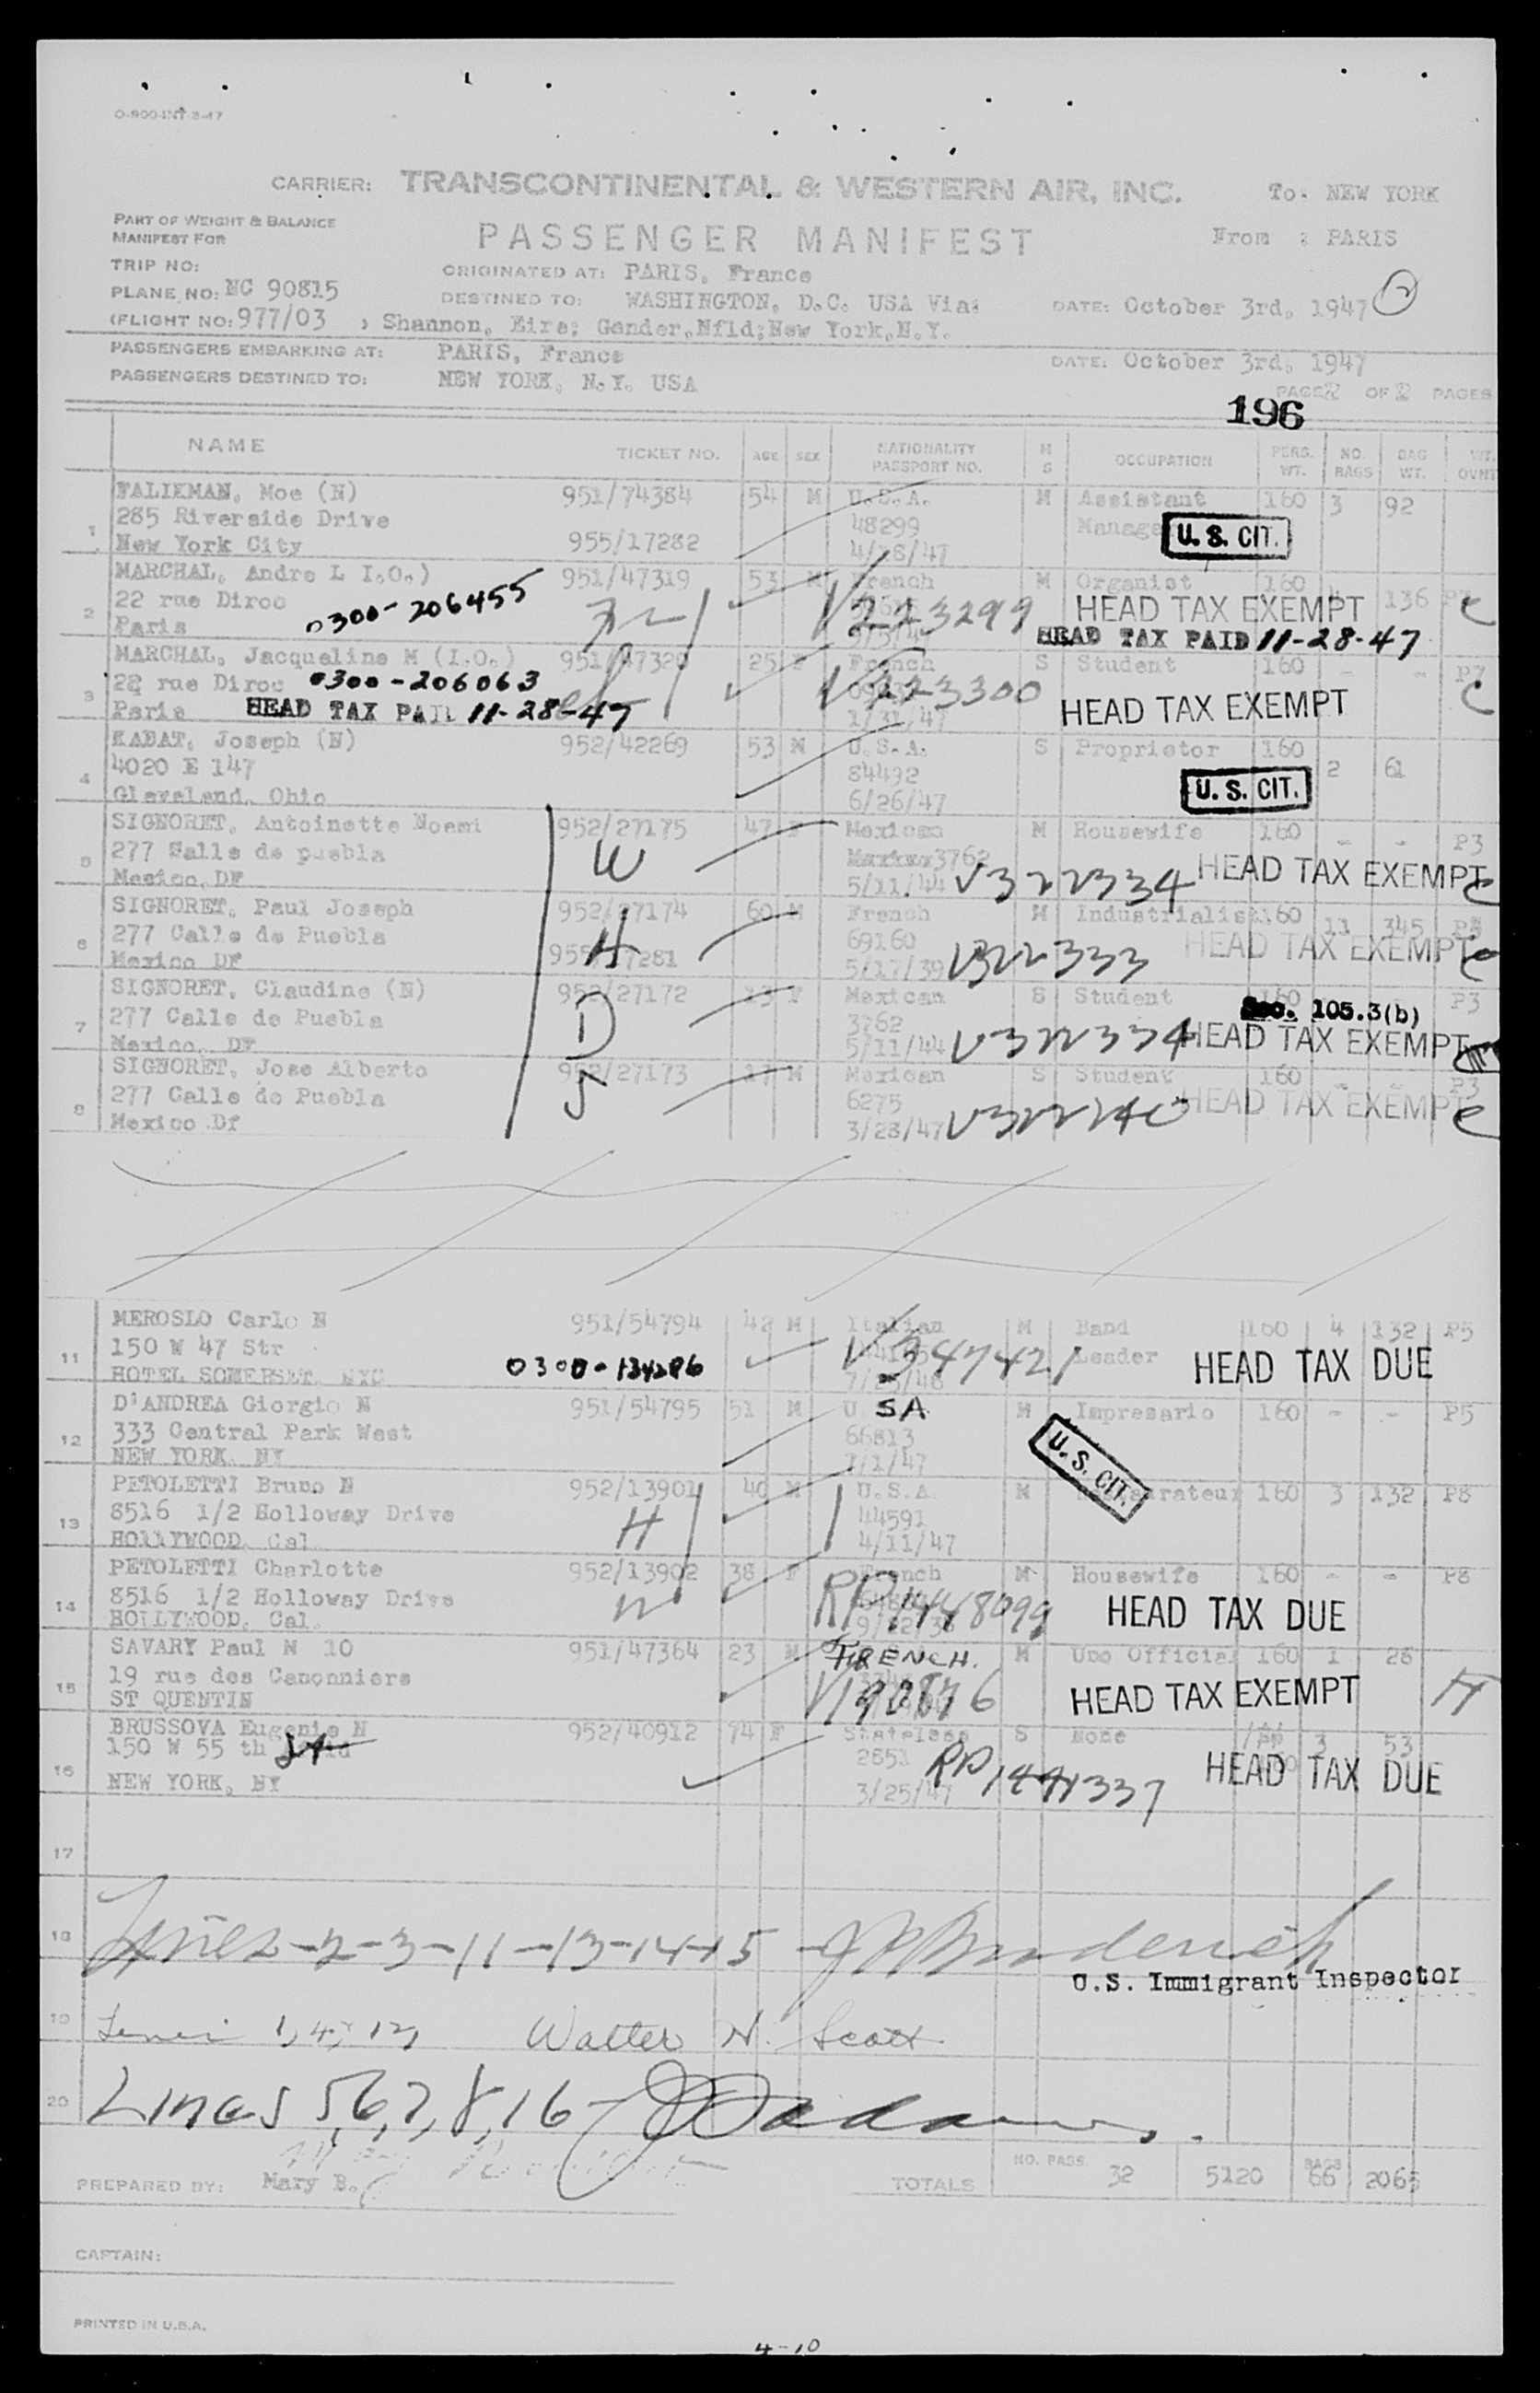 O-900-INT-3-47
CARRIER: TRANSCONTINENTAL & WESTERN AIR, INC. To. NEW YORK
PART OF WEIGHT & BALANCE
MANIFEST FOR
PASSENGER MANIFEST From : PARIS
TRIP NO: ORIGINATED AT: PARIS, France
PLANE NO: NC 90815 DESTINED TO: WASHINGTON, D.C. USA Via: DATE: October 3rd, 1947
(FLIGHT NO: 977/03 ; Shannon, Eire; Gander,Nfld;New York,N.Y.
PASSENGERS EMBARKING AT: PARIS, France DATE: October 3rd, 1947
PASSENGERS DESTINED TO: NEW YORK, N.Y. USA
PAGE 2 OF 2 PAGES
196
NAME TICKET NO. AGE SEX NATIONALITY PASSPORT NO. M S OCCUPATION PERS. WT. NO. BAGS BAG WT. WT. OVNT
FALIKMAN, Moe (N) 951/74384 54 M U.S.A. M Assistant 160 3 92
285 Riverside Drive 48299 Manage U.S. CIT.
1 New York City 955/17282 4/28/47
MARCHAL, Andre L I.O.) 951/47319 53 M French M Organist 160 136
22 rue Diroc 0300-206455 V223299 HEAD TAX EXEMPT
2 Paris HEAD TAX PAID 11-28-47
MARCHAL, Jacqueline M (I.O.) 951/47320 25 F French S Student 160 - - P7
22 rue Diroc 0300-206063 V223300 HEAD TAX EXEMPT
3 Paris HEAD TAX PAID 11-28-47 1/31/47
KABAT, Joseph (N) 952/42269 53 M U.S.A. S Proprietor 160
4020 E 147 84492 2 61
4 Cleveland, Ohio 6/26/47 U.S. CIT.
SIGNORET, Antoinette Noemi 952/27175 47 F Mexican M Housewife 160 - - P3
5 277 Calle de puebla W 3762 HEAD TAX EXEMPT
Mexico, DF 5/11/44 V322334
SIGNORET, Paul Joseph 952/27174 60 M French M Industrialist 160 11 345
6 277 Calle de Puebla H 69160 HEAD TAX EXEMPT
Mexico DF 5/17/39 V322333
SIGNORET, Claudine (N) 952/27172 13 F Mexican S Student 160 P3
7 277 Calle de Puebla D 3762 Sec. 105.3(b)
Mexico, DF 5/11/44 V322334 HEAD TAX EXEMPT
SIGNORET, Jose Alberto 952/27173 17 M Mexican S Student 160 - - P3
8 277 Calle de Puebla S 6275 HEAD TAX EXEMPT
Mexico Df 3/28/47
MEROSLO Carlo N 951/54794 42 M Italian M Band 160 4 132 P5
11 150 W 47 Str V347421 Leader HEAD TAX DUE
HOTEL SOMERSET, NYC 0300-134286
D'ANDREA Giorgio N 951/54795 51 M U SA M Impresario 160 - - P5
12 333 Central Park West 66813 U.S. CIT.
NEW YORK, NY 7/1/47
PETOLETTI Bruno N 952/13901 40 M U.S.A. M 160 3 132 P8
13 8516 1/2 Holloway Drive H 44591
HOLLYWOOD, Cal. 4/11/47
PETOLETTI Charlotte 952/13902 38 F French M Housewife 160 - - P8
14 8516 1/2 Holloway Drive W RP1448099 HEAD TAX DUE
HOLLYWOOD, Cal.
SAVARY Paul M IO 951/47364 23 M FRENCH. M Uno Official 160 1 26
15 19 rue des Canonniers V190876 HEAD TAX EXEMPT H
ST QUENTIN
BRUSSOVA Eugenie N 952/40912 74 F Stateless S None 3 53
150 W 55 th St 2651 RP1441337 HEAD TAX DUE
16 NEW YORK, NY 3/25/47
17
18 Lines-2-3-11-13-14-15
U.S. Immigrant Inspector
19 1, 4, 12, Walter N. Scott
20 Lines 5,6,7,8,16
PREPARED BY: Mary B. TOTALS NO. PASS. 32 5120 BAGS 66 2065
CAPTAIN:
PRINTED IN U.S.A.
4-10